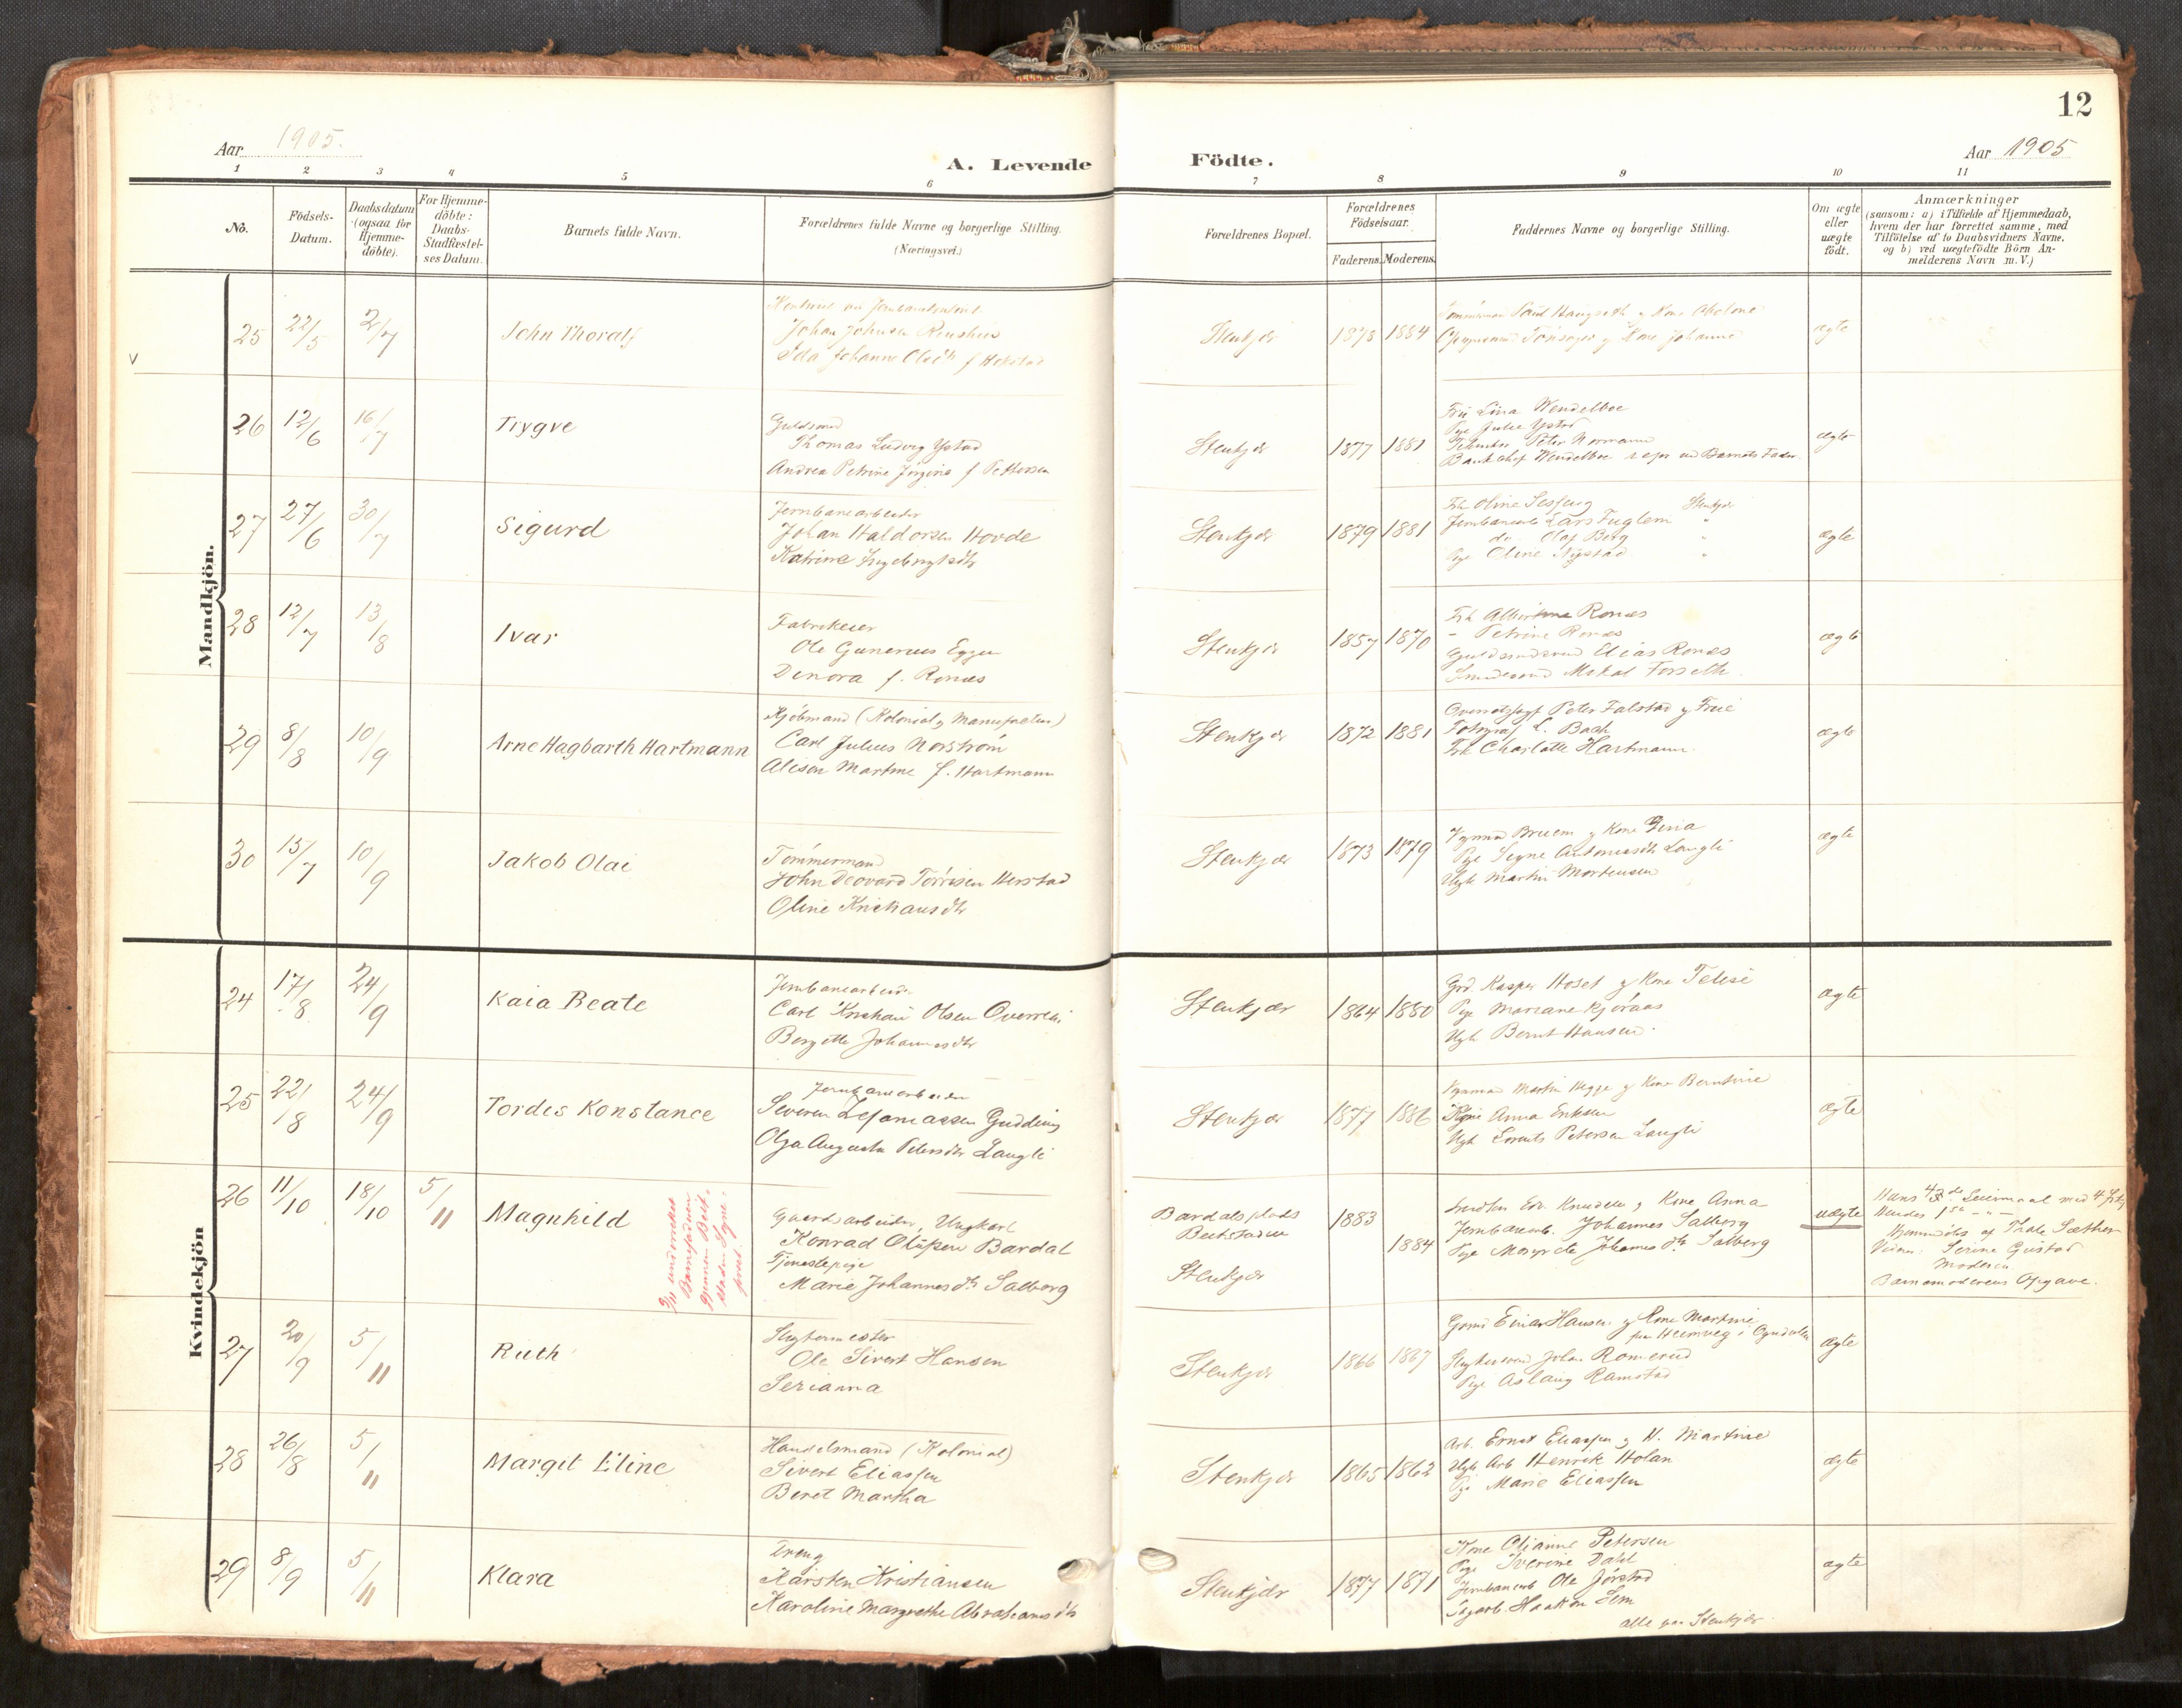 12
Aar 1905.
A. Levende Födte.
Aar 1905
1 2 3 4 5 6 7 8 9 10 11
No.
Födsels-
Datum.
Daabsdatum
(ogsaa for
Hjemme-
döbte).
For Hjemme-
döbte:
Daabs-
Stadfæstel-
ses Datum.
Barnets fulde Navn.
Forældrenes fulde Navne og borgerlige Stilling.
(Næringsvei.)
Forældrenes Bopæl.
Forældrenes
Födselsaar.
Faderens. Moderens.
Faddernes Navne og borgerlige Stilling.
Om ægte
eller
uægte
födt.
Anmærkninger
(saasom: a) i Tilfælde af Hjemmedaab,
hvem der har forrettet samme, med
Tilföielse af to Daabsvidners Navne.
og b) ved uægtefödte Börn An-
melderens Navn m. V.)
Mandkjön.
v
25 22/5 2/7 John Thoralf
Johan Johnsen
Ida Johanne f Hokstad
Stenkjær 1878 1884
Kone
Kone Johanne
ægte
26 12/6 16/7 Trygve
Guldsmed
Thomas Ludvig Ystad
Andrea Petrine Jörgine f Pettersen
Stenkjær 1877 1881
Fru Lina Wendelboe
Pige Julie Ystad
Peter Normann
Bankchef Wendelboe Barnets Fader.
ægte
27 27/6 30/7 Sigurd
Jernbanearbeider
Johan Haldorsen Hovde
Katrine Ingebrigtsdtr
Stenkjær 1879 1881
Frk Oline Stenkjær
Jernbanearb Lars Fuglem "
do Olaf Berg "
Pige Oline Nystad "
ægte
28 12/7 13/8 Ivar
Fabrikeier
Ole Gunerius Egge
Denora f. Ronæs
Stenkjær 1857 1870
Frk Albertine Ronæs
- Petrine Ronæs
Guldsmedsvend Elias Ronæs
Smedesvend Mikal Forseth.
ægte
29 8/8 10/9 Arne Hagbarth Hartmann
Kjöbmand (Kolonial og Manufaktur)
Carl Julius Norström
Alisen Martine f. Hartmann
Stenkjær 1872 1881
Overretssagf Peter Falstad og Frue
Fotograf L. Bach
Frk Charlotte Hartmann.
ægte
30 15/7 10/9 Jakob Olai
Tömmermand
John Deovard Törrisen Herstad
Oline Kristiansdtr
Stenkjær 1873 1879
Bruem og Kone
Pige Signe Antonsdtr Langli
Ungk Martin Mortensen
ægte
Kvindekjön
24 17/8 24/9 Kaia Beate
Jernbanearbeider
Carl Kristian Olsen Overrein
Bergitte Johannesdtr
Stenkjær 1864 1880
Grd. Kasper Hoset og Kone Telise
Pige Mariane Kjöraas
Ungk Bernt Hansen.
ægte
25 22/8 24/9 Tordis Konstance
Jernbanearbeider
Severin Gudding
Olga Augusta Petersdtr Langli
Stenkjær 1877 1886
Martin Hegge og Kone Berntine
Pige Anna Eriksen
Ungk Lorents Petersen Langli
ægte
26 11/10 18/10 5/11 Magnhild
Gaardsarbeider, Ungkarl
Konrad Olufsen Bardal
Tjenestepige
Marie Johannesdtr Salberg
underrettet
Barnefaderen
gjennem Beit-
staden Sogne-
prest.
Bardalsplads
Beitstaden
Stenkjær
1883
1884
Edv. Knudsen og Kone Anna
Jernbanearb. Johannes Salberg
Pige Margrete Johannesdtr Salberg
uægte
Hans Leiermaal med 4
Hendes 1ste - " -
Hjemmedöbt af Thale Sæther
Vidner: Serine Gustad
Moderen
Barnemoderens Opgave.
27 20/9 5/11 Ruth
Slagtermester
Ole Sivert Hansen
Serianna
Stenkjær 1866 1867
Gmd Einar Hansen og Kone Martine
fra Heimveg i Ogndalen
Slagtersvend Johan Romerud
Pige Aslaug Ramstad
ægte
28 26/8 5/11 Margit Eline
Handelsmand (Kolonial)
Sivert Eliassen
Beret Martha
Stenkjær 1865 1862
Arb. Ernst Eliassen og K. Martine
Ungk Arb Henrik Holan
Pige Marie Eliassen
ægte
29 8/9 5/11 Klara
Dreng
Karsten Kristiansen
Karoline Margrethe Abrahamsdtr
Stenkjær 1877 1871
Kone Olianne Petersen
Pige Iverine Dahl
Jernbanearb Ole Jörstad
Sagarb. Haakon Sem
alle paa Stenkjær
ægte